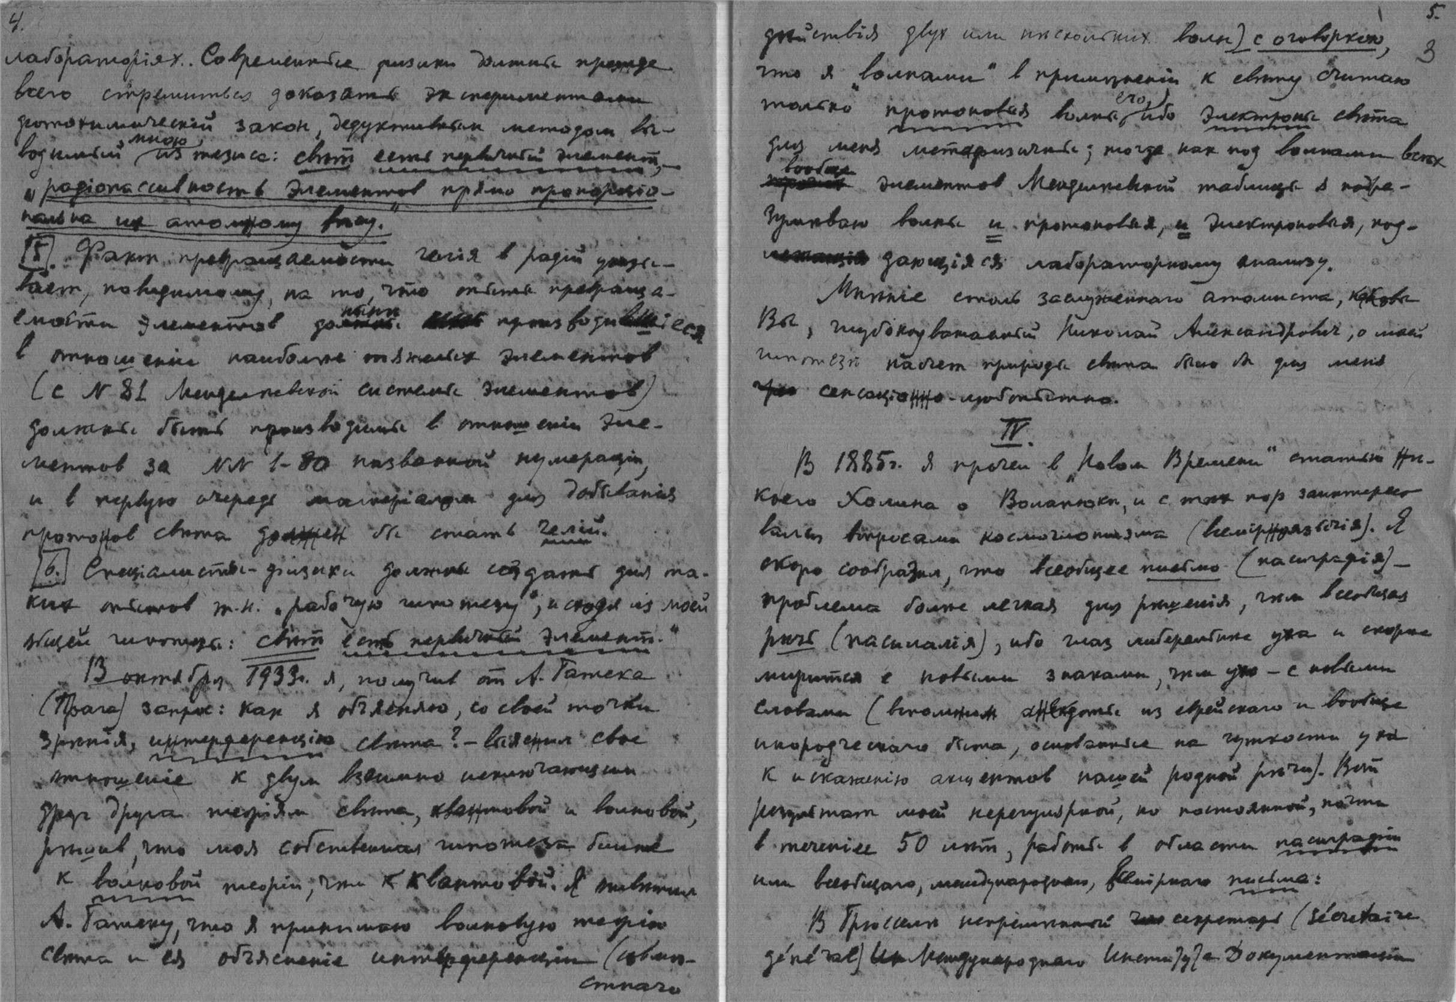 4.
лабораторіях. Современные физики должны прежде
всего стремиться доказать экспериментально
фотохимический закон, дедуктивным методом вы-
водимый мною из тезиса: свет есть первичный элемент,
"радіопассивность элементов прямо пропорціо-
нальна их атомному весу."
5. Факт превращаемости гелія в радій указы-
вает, повидимому, на то, что опыты превраща-
емости элементов ныне производившіеся
в отношеніи наиболее тяжелых элементов
(с N 81 Менделеевской системы элементов)
должны быть производимы в отношеніи эле-
ментов за NN 1-80 названной нумераціи,
и в первую очередь матеріалом для добыванія
протонов света должен бы стать гелій.
6. Спеціалисты-физики должны создать для та-
ких опытов т.н. "рабочую гипотезу", исходя из моей
общей гипотезы: свет есть первичный элемент."
В октябре 1933г. я, получив от А. Гатека
(Прага) запрос: как я объясняю, со своей точки
зренія, интерференцію света? – выяснил свое
отношеніе к двум взаимно исключающим
друг друга теоріям света, квантовой и волновой,
решив, что моя собственная гипотеза ближе
к волновой теоріи, чем к квантовой. Я ответил
А. Гатеку, что я принимаю волновую теорію
света и ея объясненіе интерференціи (совме-
стнаго
5.
3
действія двух или нескольких волн) с оговоркою,
что я "волнами" в примененіи к свету считаю
только протоновыя его волны, ибо электроны света
для меня метафизичны; тогда как под волнами всех
вообще элементов Менделеевской таблицы я подра-
зумеваю волны и протоновыя, и электроновыя, под-
дающіяся лабораторному анализу.
Мненіе столь заслуженнаго атомиста, каковы
Вы, глубокоуважаемый Николай Александрович, о моей
гипотезе насчет природы света было бы для меня
сенсаціонно-любопытно.
IV.
В 1885г. я прочел в "Новом Времени" статью не-
коего Холина о Волапюке, и с тех пор заинтересо
вался вопросами космоглоттизма (всемірноязычія). Я
скоро сообразил, что всеобщее письмо (пасиграфія) –
проблема более легкая для решенія, чем всеобщая
речь (пасилалія), ибо глаз либеральнее уха и скорее
мирится с новыми знаками, чем ухо – с новыми
словами (вспомним анекдоты из еврейскаго и вообще
инородческаго быта, основанные на чуткости уха
к искаженію акцентов нашей родной речи). Вот
результат моей нерегулярной, но постоянной, почти
в теченіе 50 лет, работы в области пасиграфіи
или всеобщаго, международнаго, всемірнаго письма:
В Брюсселе непременный секретарь (secrétaire
général) Международнаго Института Документаціи